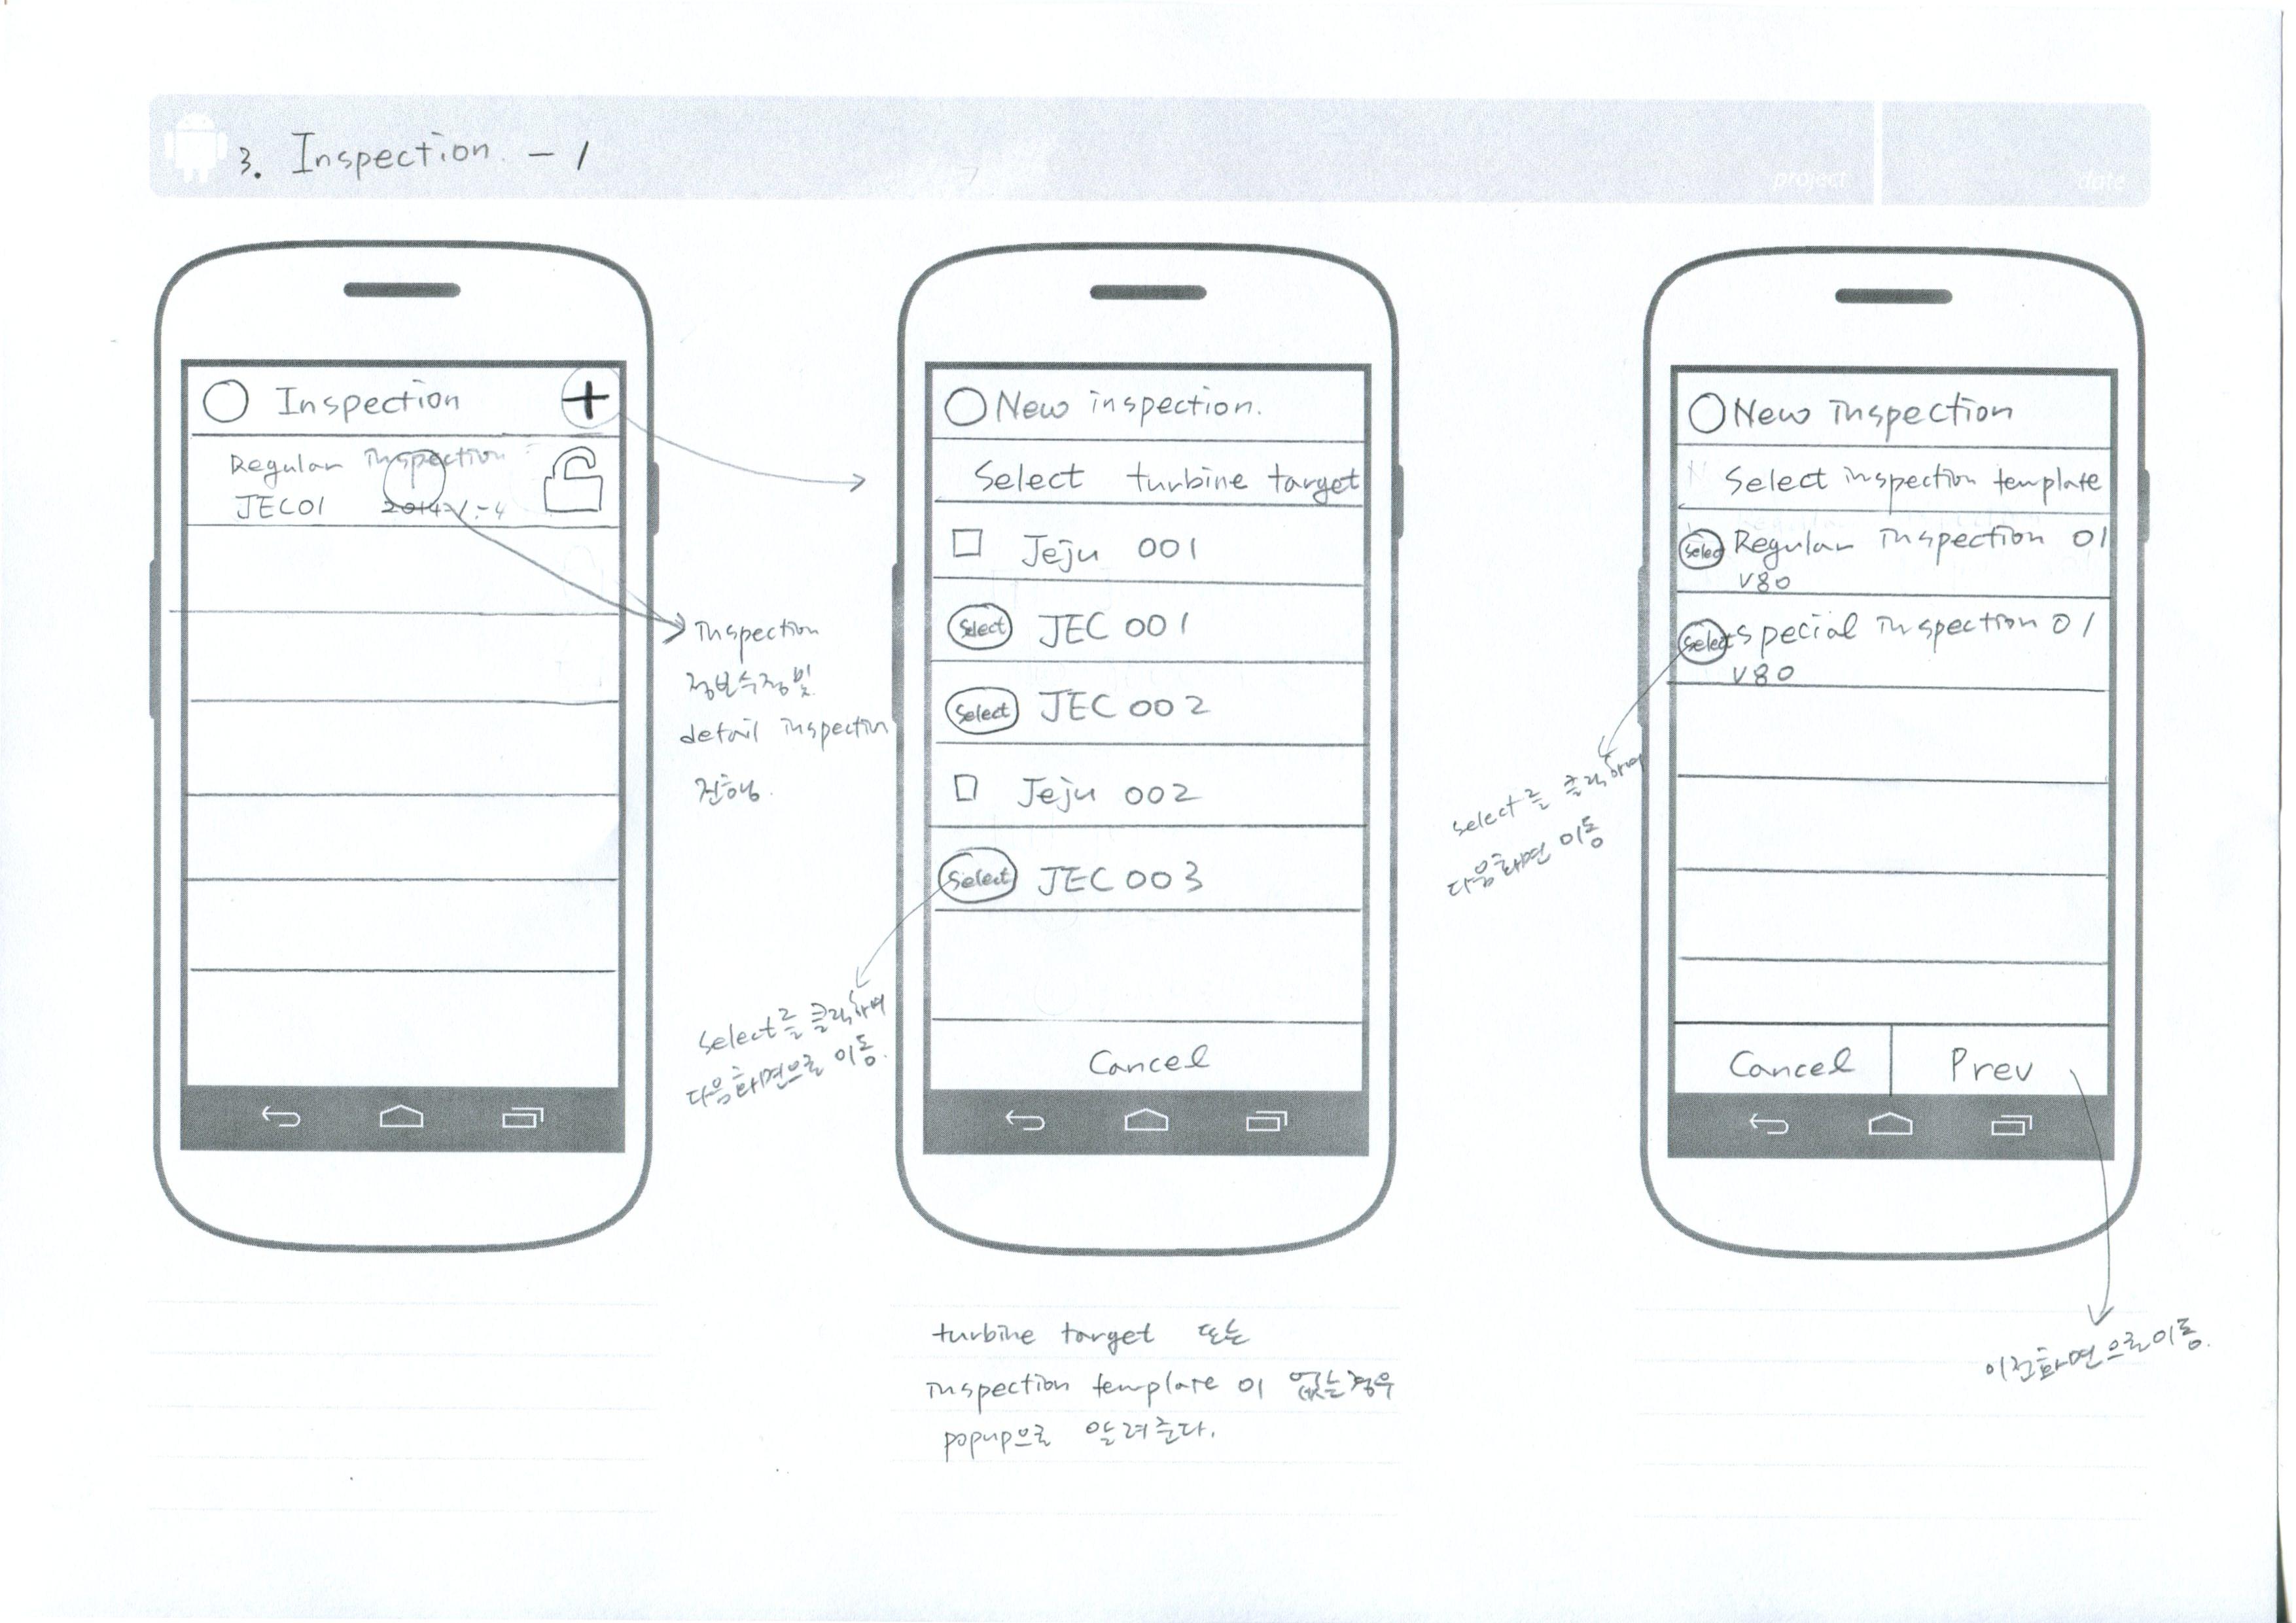 3. Inspection - 1
project
date
Inspection +
Regular Inspection
JEC01
Inspection
정보수정 및
detail inspection
진행.
New inspection.
Select turbine target
Jeju 001
Select JEC 001
Select JEC 002
Jeju 002
Select JEC 003
Cancel
Select를 클릭하여
다음화면으로 이동.
turbine target 또는
inspection template 이 없는경우
popup으로 알려준다.
New Inspection
Select inspection template
Select Regular Inspection 01
V80
Select Special Inspection 01
V80
Cancel Prev
Select를 클릭하여
다음화면 이동
이전화면으로이동.